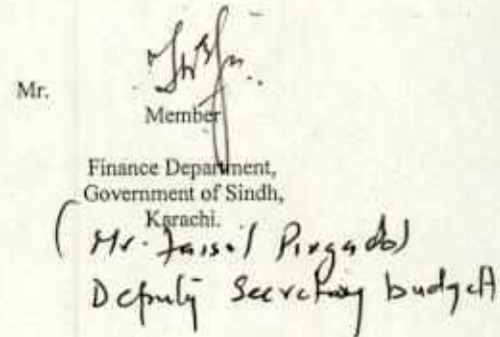 Mr.
Member
Finance Department,
Government of Sindh,
Karachi.
( Mr. Faisal
Deputy Secretary budget